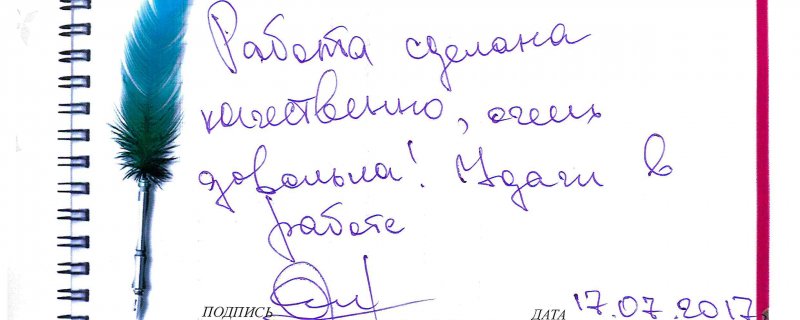 Работа сделана
качественно, очень
довольна! Удачи в
работе
ПОДПИСЬ ДАТА 17.07.2017